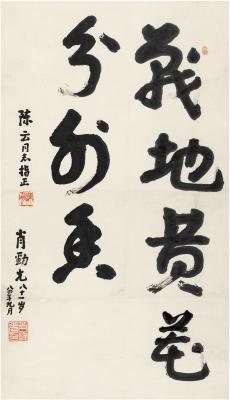 战地黄花
分外香
陈云同志指正
肖劲光八十一岁
八四年九月